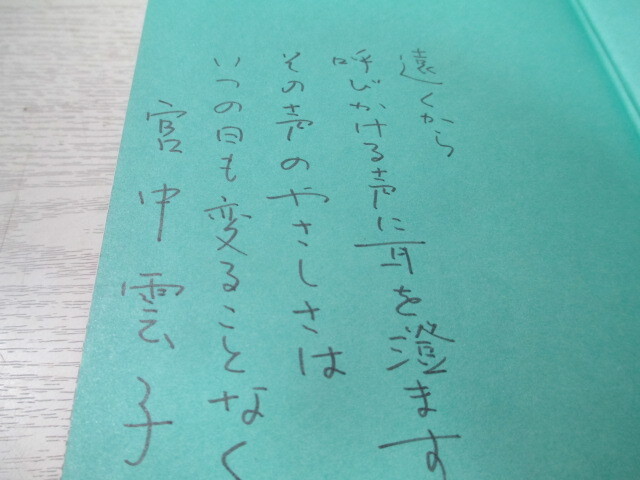 遠くから
呼びかける声に耳を澄ます
その声のやさしさは
いつの日も変ることなく
宮中雲子